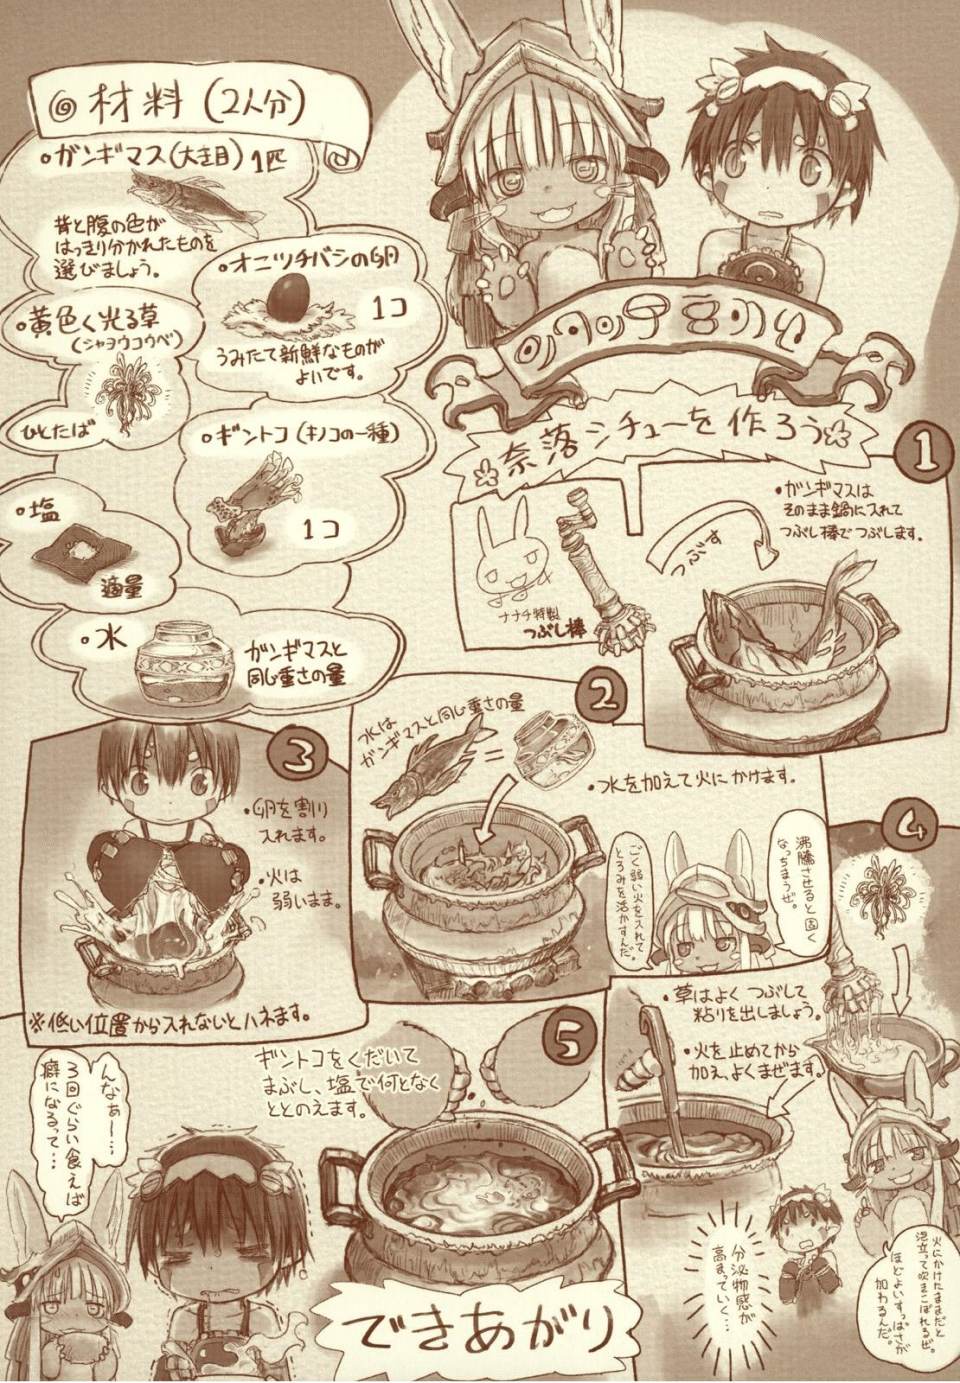 材料(2人分)
・ガンギマス(大き目)1匹
背と腹の色が
はっきり分かれたものを
選びましょう。
・オニツチバシの卵
1コ
うみたて新鮮なものが
よいです。
・黄色く光る草
(シャヨウコウベ)
ひとたば
・ギントコ(キノコの一種)
1コ
・塩
適量
・水
ガンギマスと
同じ重さの量
奈落シチューを作ろう
1
・ガンギマスは
そのまま鍋に入れて
つぶし棒でつぶします。
つぶす
ナナチ特製
つぶし棒
2
水は
ガンギマスと同じ重さの量
=
・水を加えて火にかけます。
沸騰させると固く
なっちまうぜ。
ごく弱い火を入れて
とろみを活かすんだ。
3
・卵を割り
入れます。
・火は
弱いまま。
※低い位置から入れないとハネます。
4
・草はよくつぶして
粘りを出しましょう。
・火を止めてから
加え、よくまぜます。
火にかけたままだと
泡立って吹きこぼれるぜ。
ほどよいすっぱさが
加わるんだ。
分泌物感が
高まっていく…
5
ギントコをくだいて
まぶし、塩で何となく
ととのえます。
んなぁー…
3回ぐらい食えば
癖になるって…
できあがり